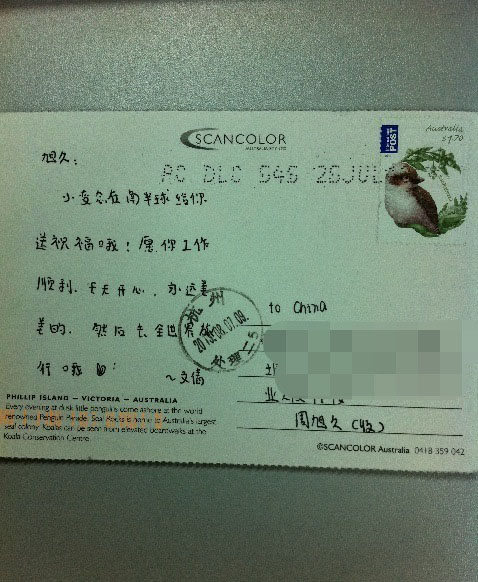 SCANCOLOR
AUSTRALIA PTY LTD
INTERNATIONAL POST
Australia
$1.70
AC DLC 545 26JUL
旭久：
小变态在南半球给你
送祝福哦！愿你工作
顺利，天天开心，永远美
美的，然后去全世界旅
行哦
～文倩
杭州
2013.08.07.09
处理二5
to China
业
周旭久（收）
PHILLIP ISLAND – VICTORIA – AUSTRALIA
Every evening at dusk little penguins come ashore at the world
renowned Penguin Parade. Seal Rocks is home to Australia's largest
seal colony. Koalas can be seen from elevated boardwalks at the
Koala Conservation Centre.
©SCANCOLOR Australia 0418 359 042